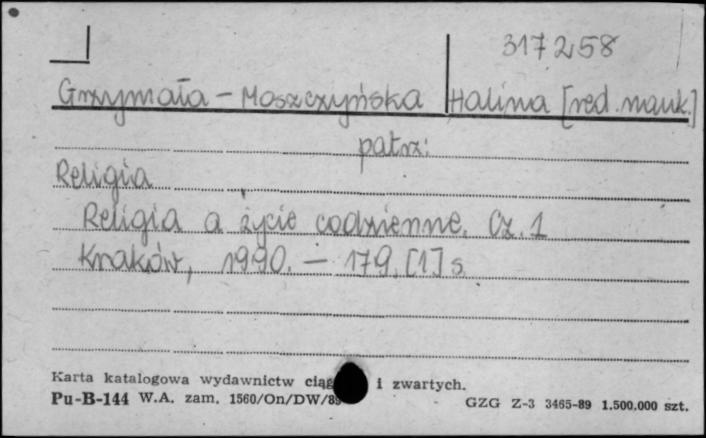 317258
Grzymała-Moszczyńska Halina [red. nauk.]
patrz:
Religia
Religia a życie codzienne. Cz. 1
Kraków, 1990. — 179, [1] s.
Karta katalogowa wydawnictw i zwartych.
Pu-B-144 W.A. zam. 1560/On/DW/89
GZG Z-3 3465-89 1.500.000 szt.